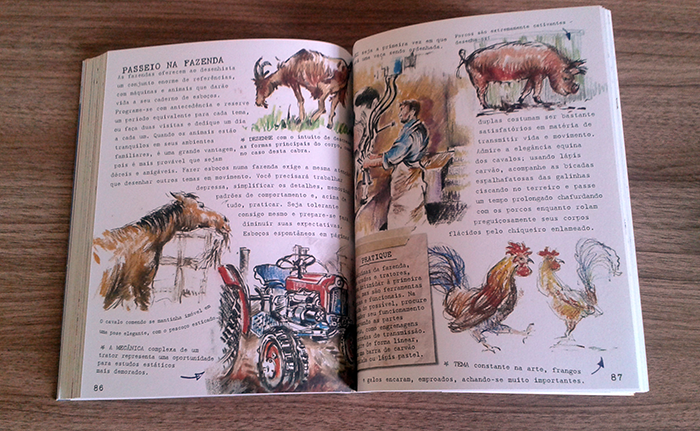 PASSEIO NA FAZENDA
As fazendas oferecem ao desenhista
um conjunto enorme de referências,
com máquinas e animais que darão
vida a seu caderno de esboços.
Programe-se com antecedência e reserve
um período equivalente para cada tema,
ou faça duas visitas e dedique um dia
a cada um. Quando os animais estão
tranquilos em seus ambientes
familiares, é uma grande vantagem,
pois é mais provável que sejam
dóceis e amigáveis. Fazer esboços numa fazenda exige a mesma
que desenhar outros temas em movimento. Você precisará trabalhar
depressa, simplificar os detalhes,
padrões de comportamento e, acima de
tudo, praticar. Seja tolerante
consigo mesmo e prepare-se para
diminuir suas expectativas.
Esboços espontâneos em páginas
DESENHE com o intuito de
as formas principais do corpo,
no caso desta cabra.
O cavalo comendo se mantinha imóvel em
uma pose elegante, com o pescoço esticado.
A MECÂNICA complexa de um
trator representa uma oportunidade
para estudos estáticos
mais demorados.
86
seja a primeira vez em que
uma vaca sendo ordenhada.
Porcos são extremamente cativantes -
duplas costumam ser bastante
satisfatórios em matéria de
transmitir vida e movimento.
Admire a elegância equina
dos cavalos, usando lápis
carvão, acompanhe as bicadas
espalhafatosas das galinhas
ciscando no terreiro e passe
um tempo prolongado chafurdando
com os porcos enquanto rolam
preguiçosamente seus corpos
flácidos pelo chiqueiro enlameado.
PRATIQUE
da fazenda.
e tratores,
intimidar à primeira
mas são ferramentas
e funcionais. Na
possível, procure
seu funcionamento
as partes
como engrenagens
de transmissão.
de forma linear,
barra de carvão
ou lápis pastel.
TEMA constante na arte, frangos
e galos encaram, emproados, achando-se muito importantes.
87